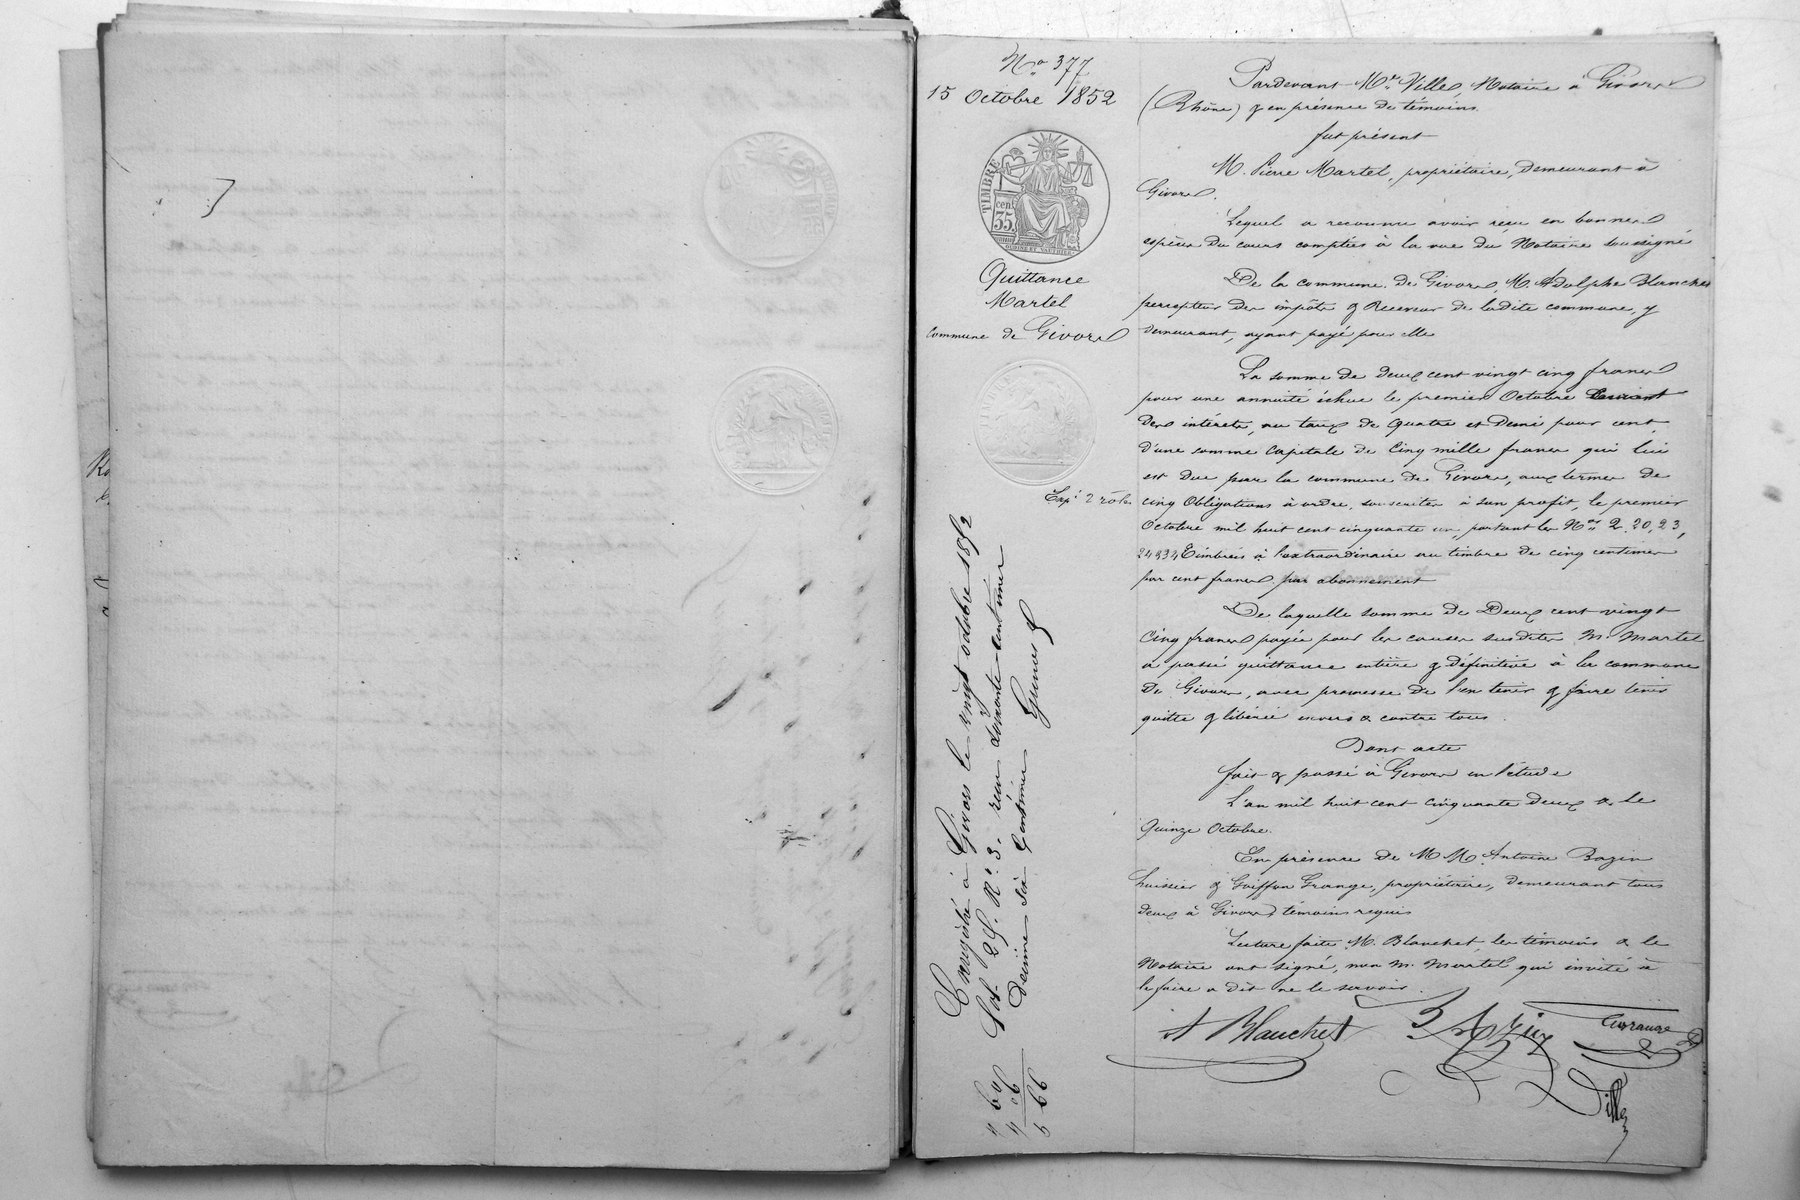 N° 377
15 Octobre 1852
TIMBRE
cen
35.
Quittance
Martel
Commune de Givors
Exp. 2 rôles
Enregistré à Givors le vingt octobre 1852
fol. 25. R° 3. reçu soixante centimes
Decime six Centimes
60
06
66
Pardevant Me Ville, Notaire à Givors
(Rhône) & en présence de témoins
fut présent
M. Pierre Martel, propriétaire, demeurant à
Givors.
Lequel a reconnu avoir reçu en bonnes
espèces du cours comptées à la vue du Notaire soussigné
De la commune de Givors, M. Adolphe Blanchet
percepteur des impôts & Receveur de ladite commune, y
demeurant, ayant payé pour elle
La somme de deux cent vingt cinq francs
pour une annuité échue le premier Octobre Courant
des intérêts, au taux de quatre et demi pour cent
d'une somme capitale de Cinq mille francs qui lui
est due par la commune de Givors, aux termes de
cinq Obligations à ordre, souscrites à son profit, le premier
Octobre mil huit cent cinquante un, portant les Nos 2, 20, 23,
24 & 34 Timbrés à l'extraordinaire au timbre de cinq centimes
par cent francs par abonnement
De laquelle somme de Deux cent vingt
Cinq francs payée pour les causes susdites M. Martel
a passé quittance entière & définitive à la commune
de Givors, avec promesse de l'en tenir & faire tenir
quitte & libérée envers & contre tous.
Dont acte
fait & passé à Givors en l'étude
L'an mil huit cent cinquante deux & le
Quinze Octobre.
En présence de MM. Antoine Bazin
huissier & Goiffon Grange, propriétaire, demeurant tous
deux à Givors, témoins requis
Lecture faite M. Blanchet, les témoins & le
Notaire ont signé, non M. Martel qui invité à
le faire a dit ne le savoir.
A Blanchet
Bazin
Grange
Ville